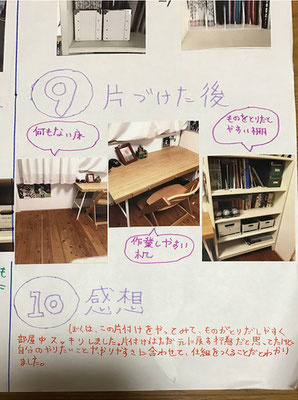 ⑨ 片づけた後
何もない床
ものをとりだし
やすい棚
作業しやすい
机
⑩ 感想
ぼくは、この片付けをやってみて、ものがとりだしやすく
部屋中スッキリしました。片付けはただ元に戻る行動だと思ってたけど
自分のやりたいことややりやすさに合わせて、仕組をつくることだとわかり
ました。